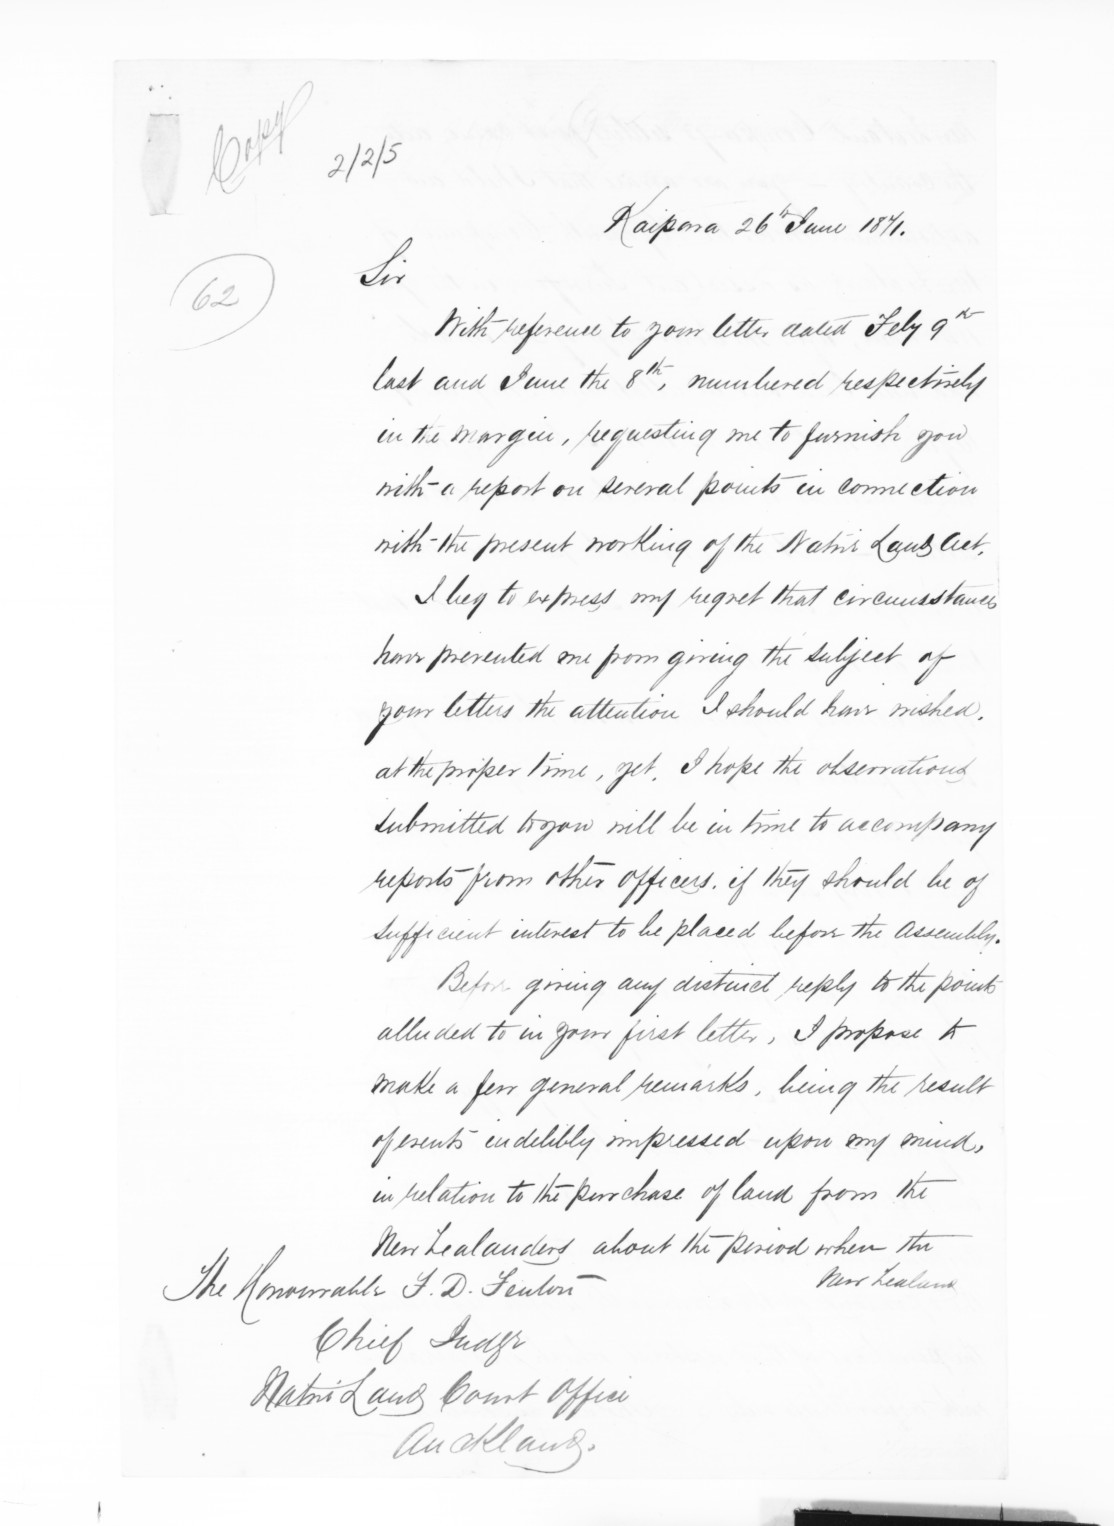 Copy
2/2/5
Kaipara 26th June 1871.
62
Sir
With reference to your letter dated Feby 9th
last and June the 8th, numbered respectively
in the margin, requesting me to furnish you
with a report on several points in connection
with the present working of the Native Lands Act.
I beg to express my regret that circumstances
have prevented me from giving the subject of
your letters the attention I should have wished,
at the proper time, yet, I hope the observations
submitted to you will be in time to accompany
reports from other officers, if they should be of
sufficient interest to be placed before the Assembly.
Before giving any distinct reply to the points
alluded to in your first letter, I propose to
make a few general remarks, being the result
of events indelibly impressed upon my mind,
in relation to the purchase of land from the
New Zealanders about the period when the
New Zealand
The Honourable F. D. Fenton
Chief Judge
Native Lands Court Office
Auckland.